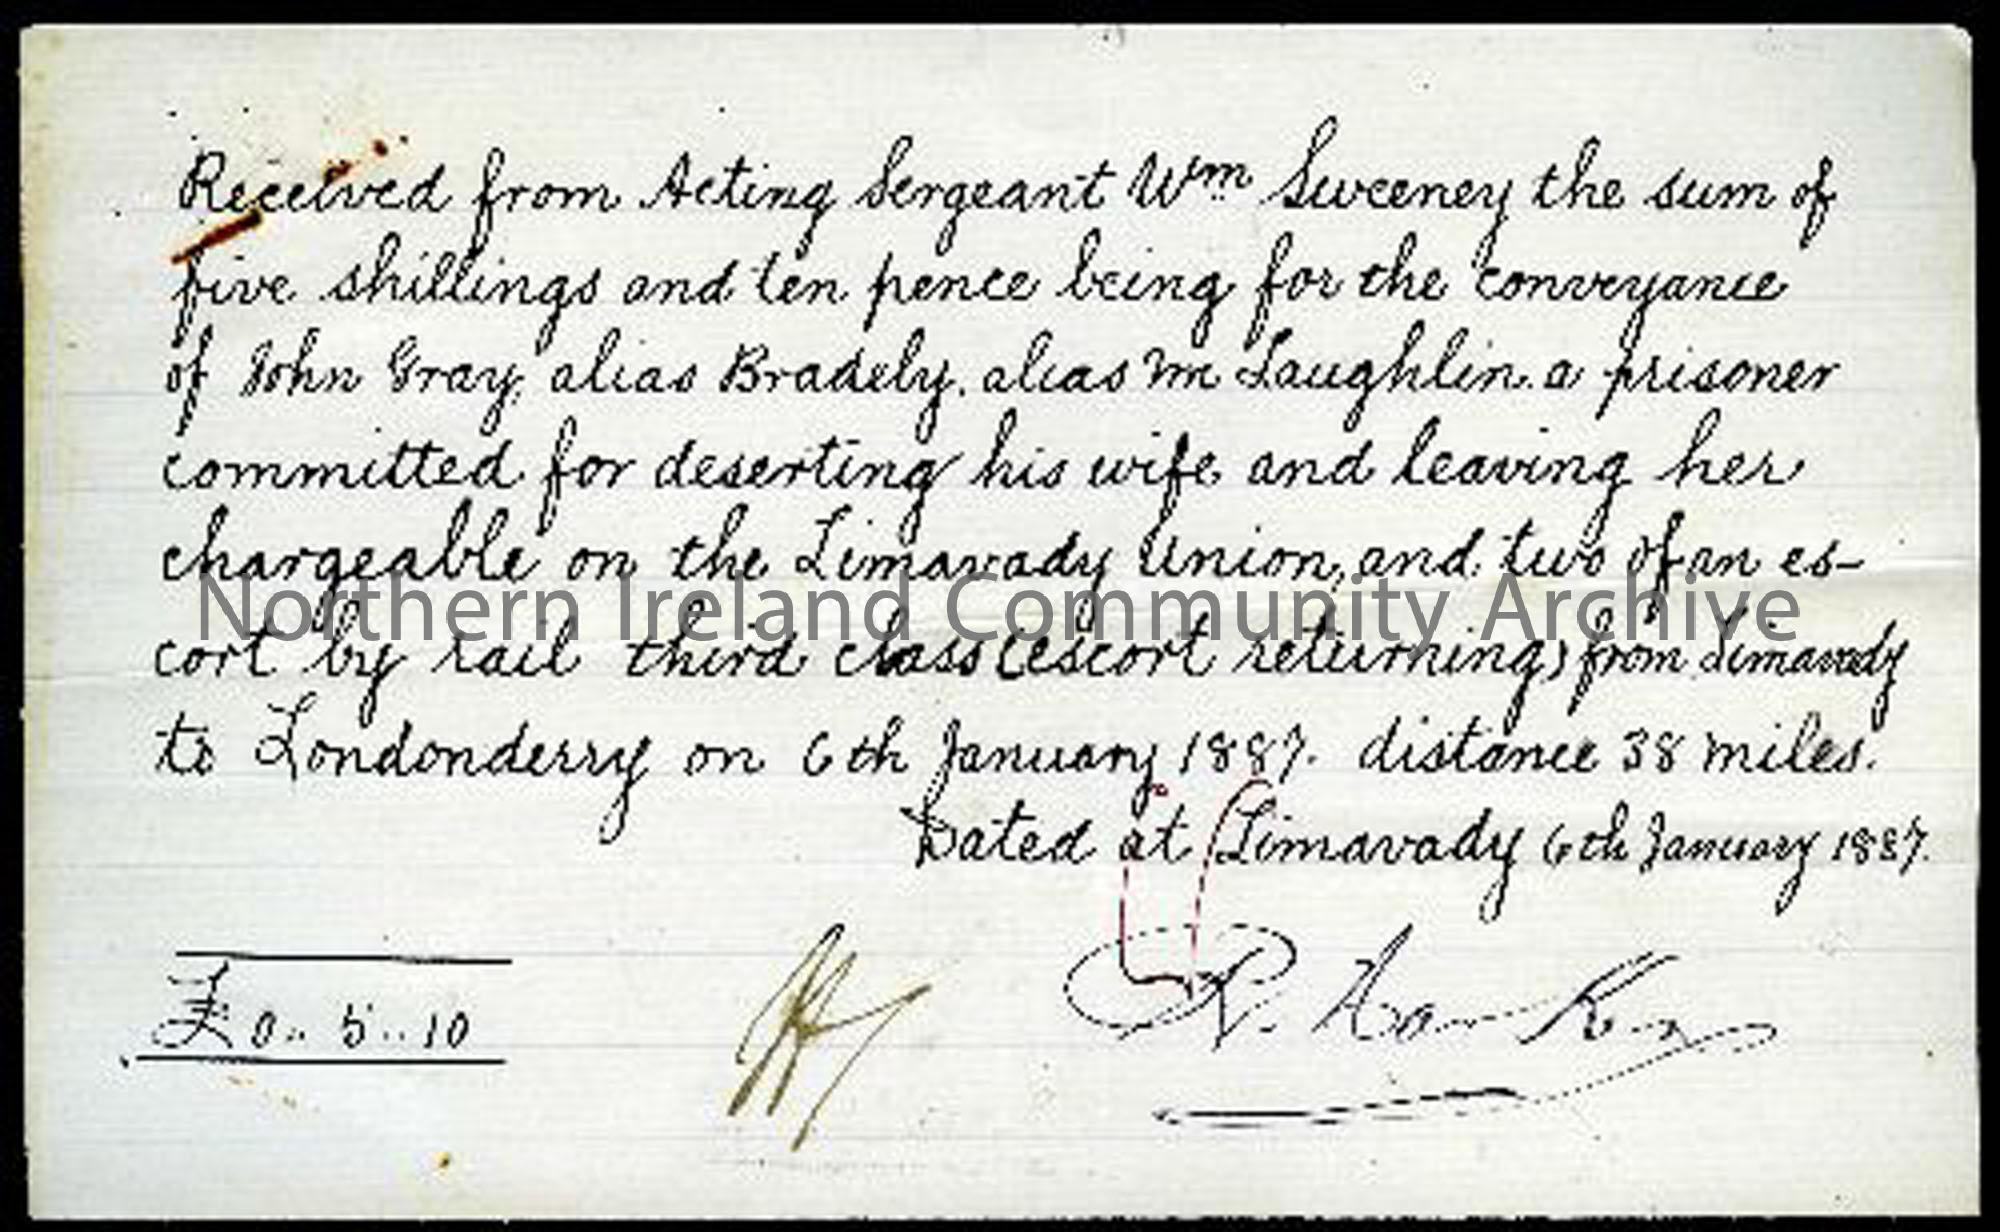 Received from Acting Sergeant Wm Sweeney the sum of
five shillings and ten pence being for the conveyance
of John Gray, alias Bradely, alias Mc Laughlin, a prisoner
committed for deserting his wife and leaving her
chargeable on the Limavady Union, and two of an es-
Northern Ireland Community Archive
cort by rail third class (escort returning) from Limavady
to Londonderry on 6th January 1887. distance 38 miles.
Dated at Limavady 6th January 1887.
£ 0.. 5.. 10
R.